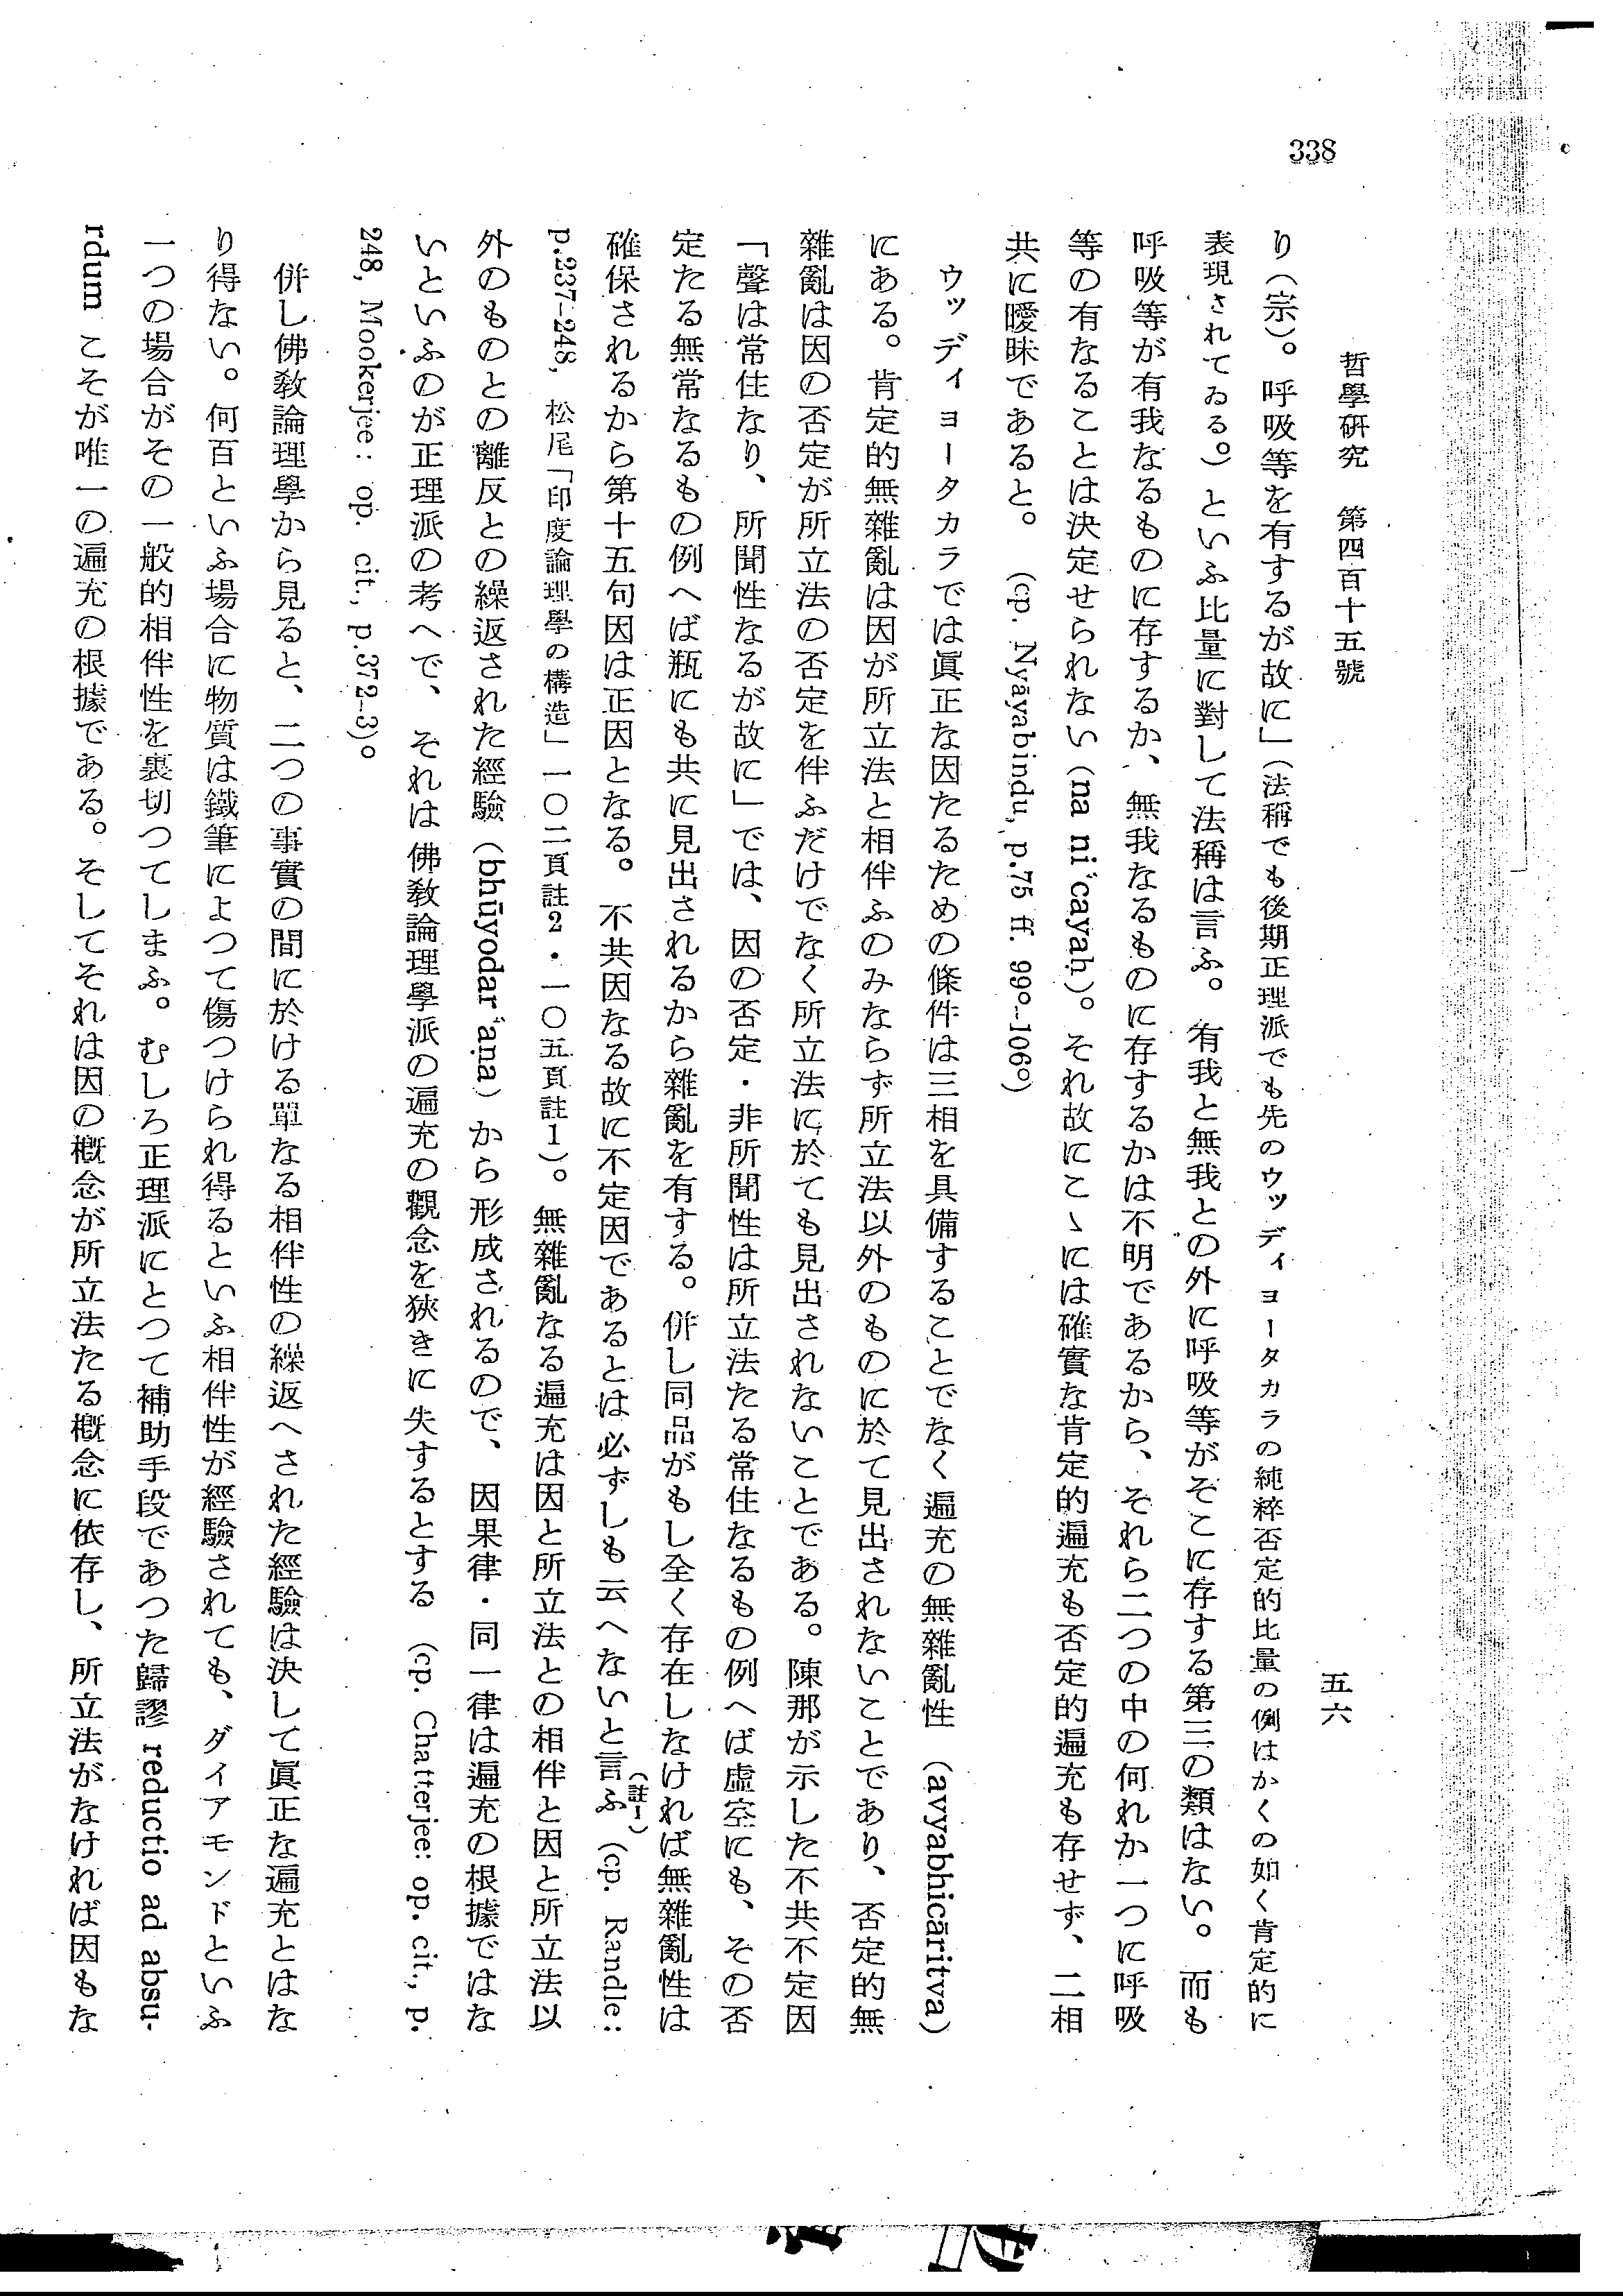 338
哲學硏究　第四百十五號
五六
り（宗）。呼吸等を有するが故に」（法稱でも後期正理派でも先のウッディヨータカラの純粹否定的比量の例はかくの如く肯定的に
表現されてゐる。）といふ比量に對して法稱は言ふ。有我と無我との外に呼吸等がそこに存する第三の類はない。而も
呼吸等が有我なるものに存するか、無我なるものに存するかは不明であるから、それら二つの中の何れか一つに呼吸
等の有なることは決定せられない（na niścayaḥ）。それ故にこゝには確實な肯定的遍充も否定的遍充も存せず、二相
共に曖昧であると。（cp. Nyāyabindu, p.75 ff. 99°–106°）
ウッディヨータカラでは眞正な因たるための條件は三相を具備することでなく遍充の無雜亂性（avyabhicāritva）
にある。肯定的無雜亂は因が所立法と相伴ふのみならず所立法以外のものに於て見出されないことであり、否定的無
雜亂は因の否定が所立法の否定を伴ふだけでなく所立法に於ても見出されないことである。陳那が示した不共不定因
「聲は常住なり、所聞性なるが故に」では、因の否定・非所聞性は所立法たる常住なるもの例へば虛空にも、その否
定たる無常なるもの例へば瓶にも共に見出されるから雜亂を有する。併し同品がもし全く存在しなければ無雜亂性は
確保されるから第十五句因は正因となる。不共因なる故に不定因であるとは必ずしも云へないと言ふ（註1）（cp. Randle:
p.237–248, 松尾「印度論理學の構造」一〇二頁註2・一〇五頁註1）。無雜亂なる遍充は因と所立法との相伴と因と所立法以
外のものとの離反との繰返された經驗（bhūyodarśaṇa）から形成されるので、因果律・同一律は遍充の根據ではな
いといふのが正理派の考へで、それは佛敎論理學派の遍充の觀念を狹きに失するとする（cp. Chatterjee: op. cit., p.
248, Mookerjee: op. cit., p.372–3）。
併し佛敎論理學から見ると、二つの事實の間に於ける單なる相伴性の繰返へされた經驗は決して眞正な遍充とはな
り得ない。何百といふ場合に物質は鐵筆によつて傷つけられ得るといふ相伴性が經驗されても、ダイアモンドといふ
一つの場合がその一般的相伴性を裏切つてしまふ。むしろ正理派にとつて補助手段であつた歸謬 reductio ad absu-
rdum こそが唯一の遍充の根據である。そしてそれは因の槪念が所立法たる槪念に依存し、所立法がなければ因もな